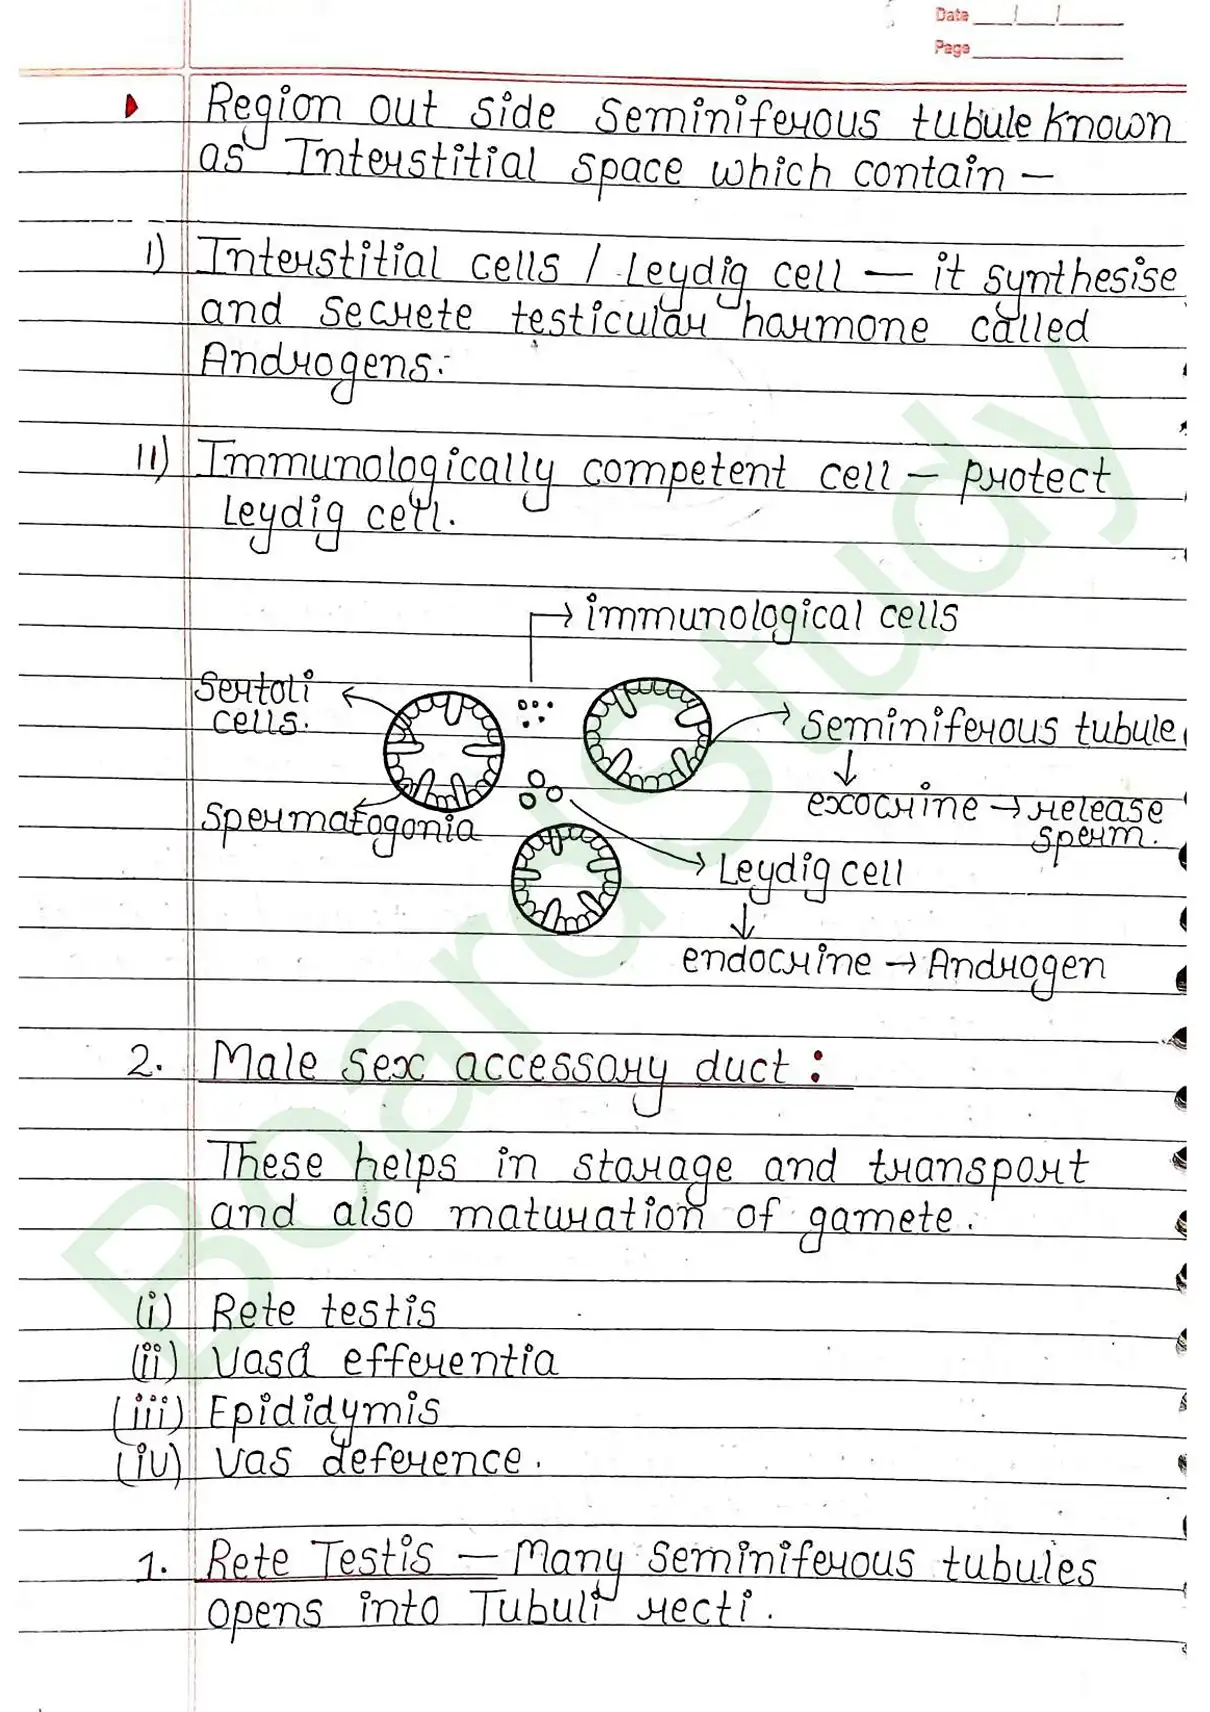 Date
Page
Region out side seminiferous tubule known
as Interstitial space which contain —
i) Interstitial cells / Leydig cell — it synthesise
and secrete testicular harmone called
Androgens.
ii) Immunologically competent cell — protect
Leydig cell.
→ immunological cells
Sertoli
cells.
seminiferous tubule
exocrine → release
sperm.
spermatogonia
Leydig cell
endocrine → Androgen
2. Male sex accessory duct :
These helps in storage and transport
and also maturation of gamete.
(i) Rete testis
(ii) Vasa efferentia
(iii) Epididymis
(iv) Vas deference.
1. Rete Testis — Many seminiferous tubules
opens into Tubuli recti.
BoardStudy